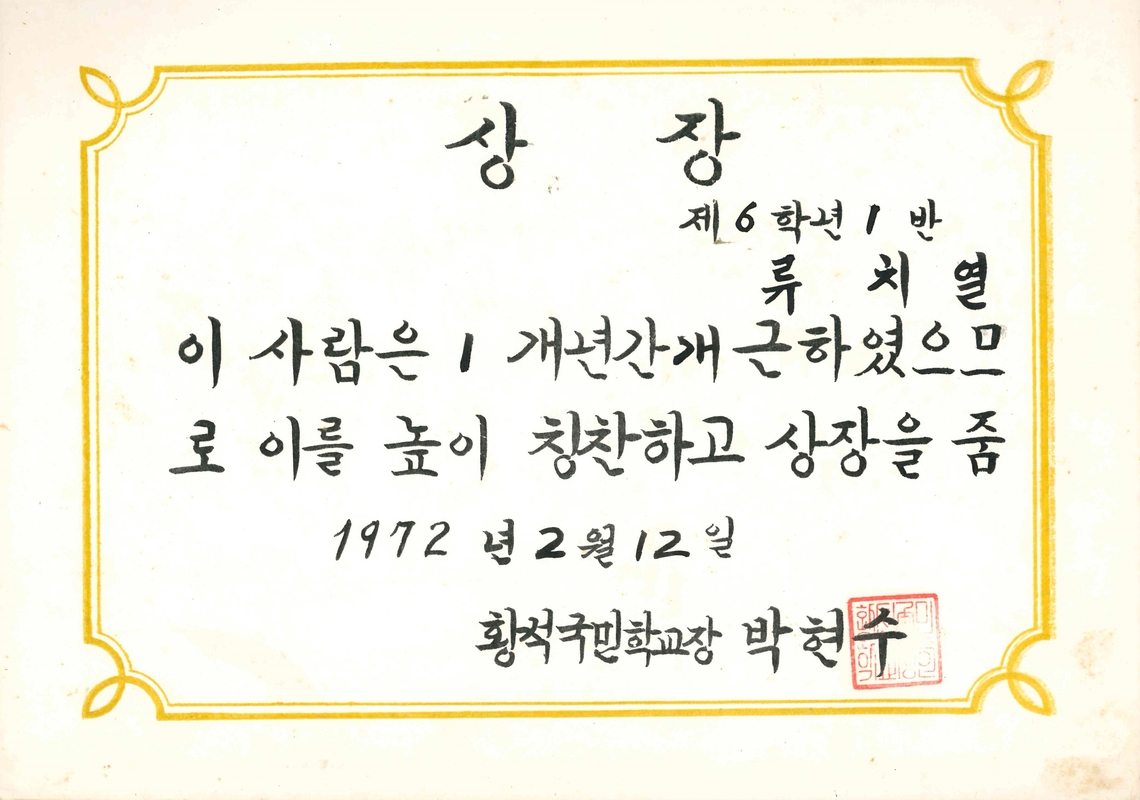 상 장
제 6 학년 1 반
류 치 열
이 사람은 1 개년간개근하였으므
로 이를 높이 칭찬하고 상장을 줌
1972 년 2 월 12 일
황석국민학교장 박현수